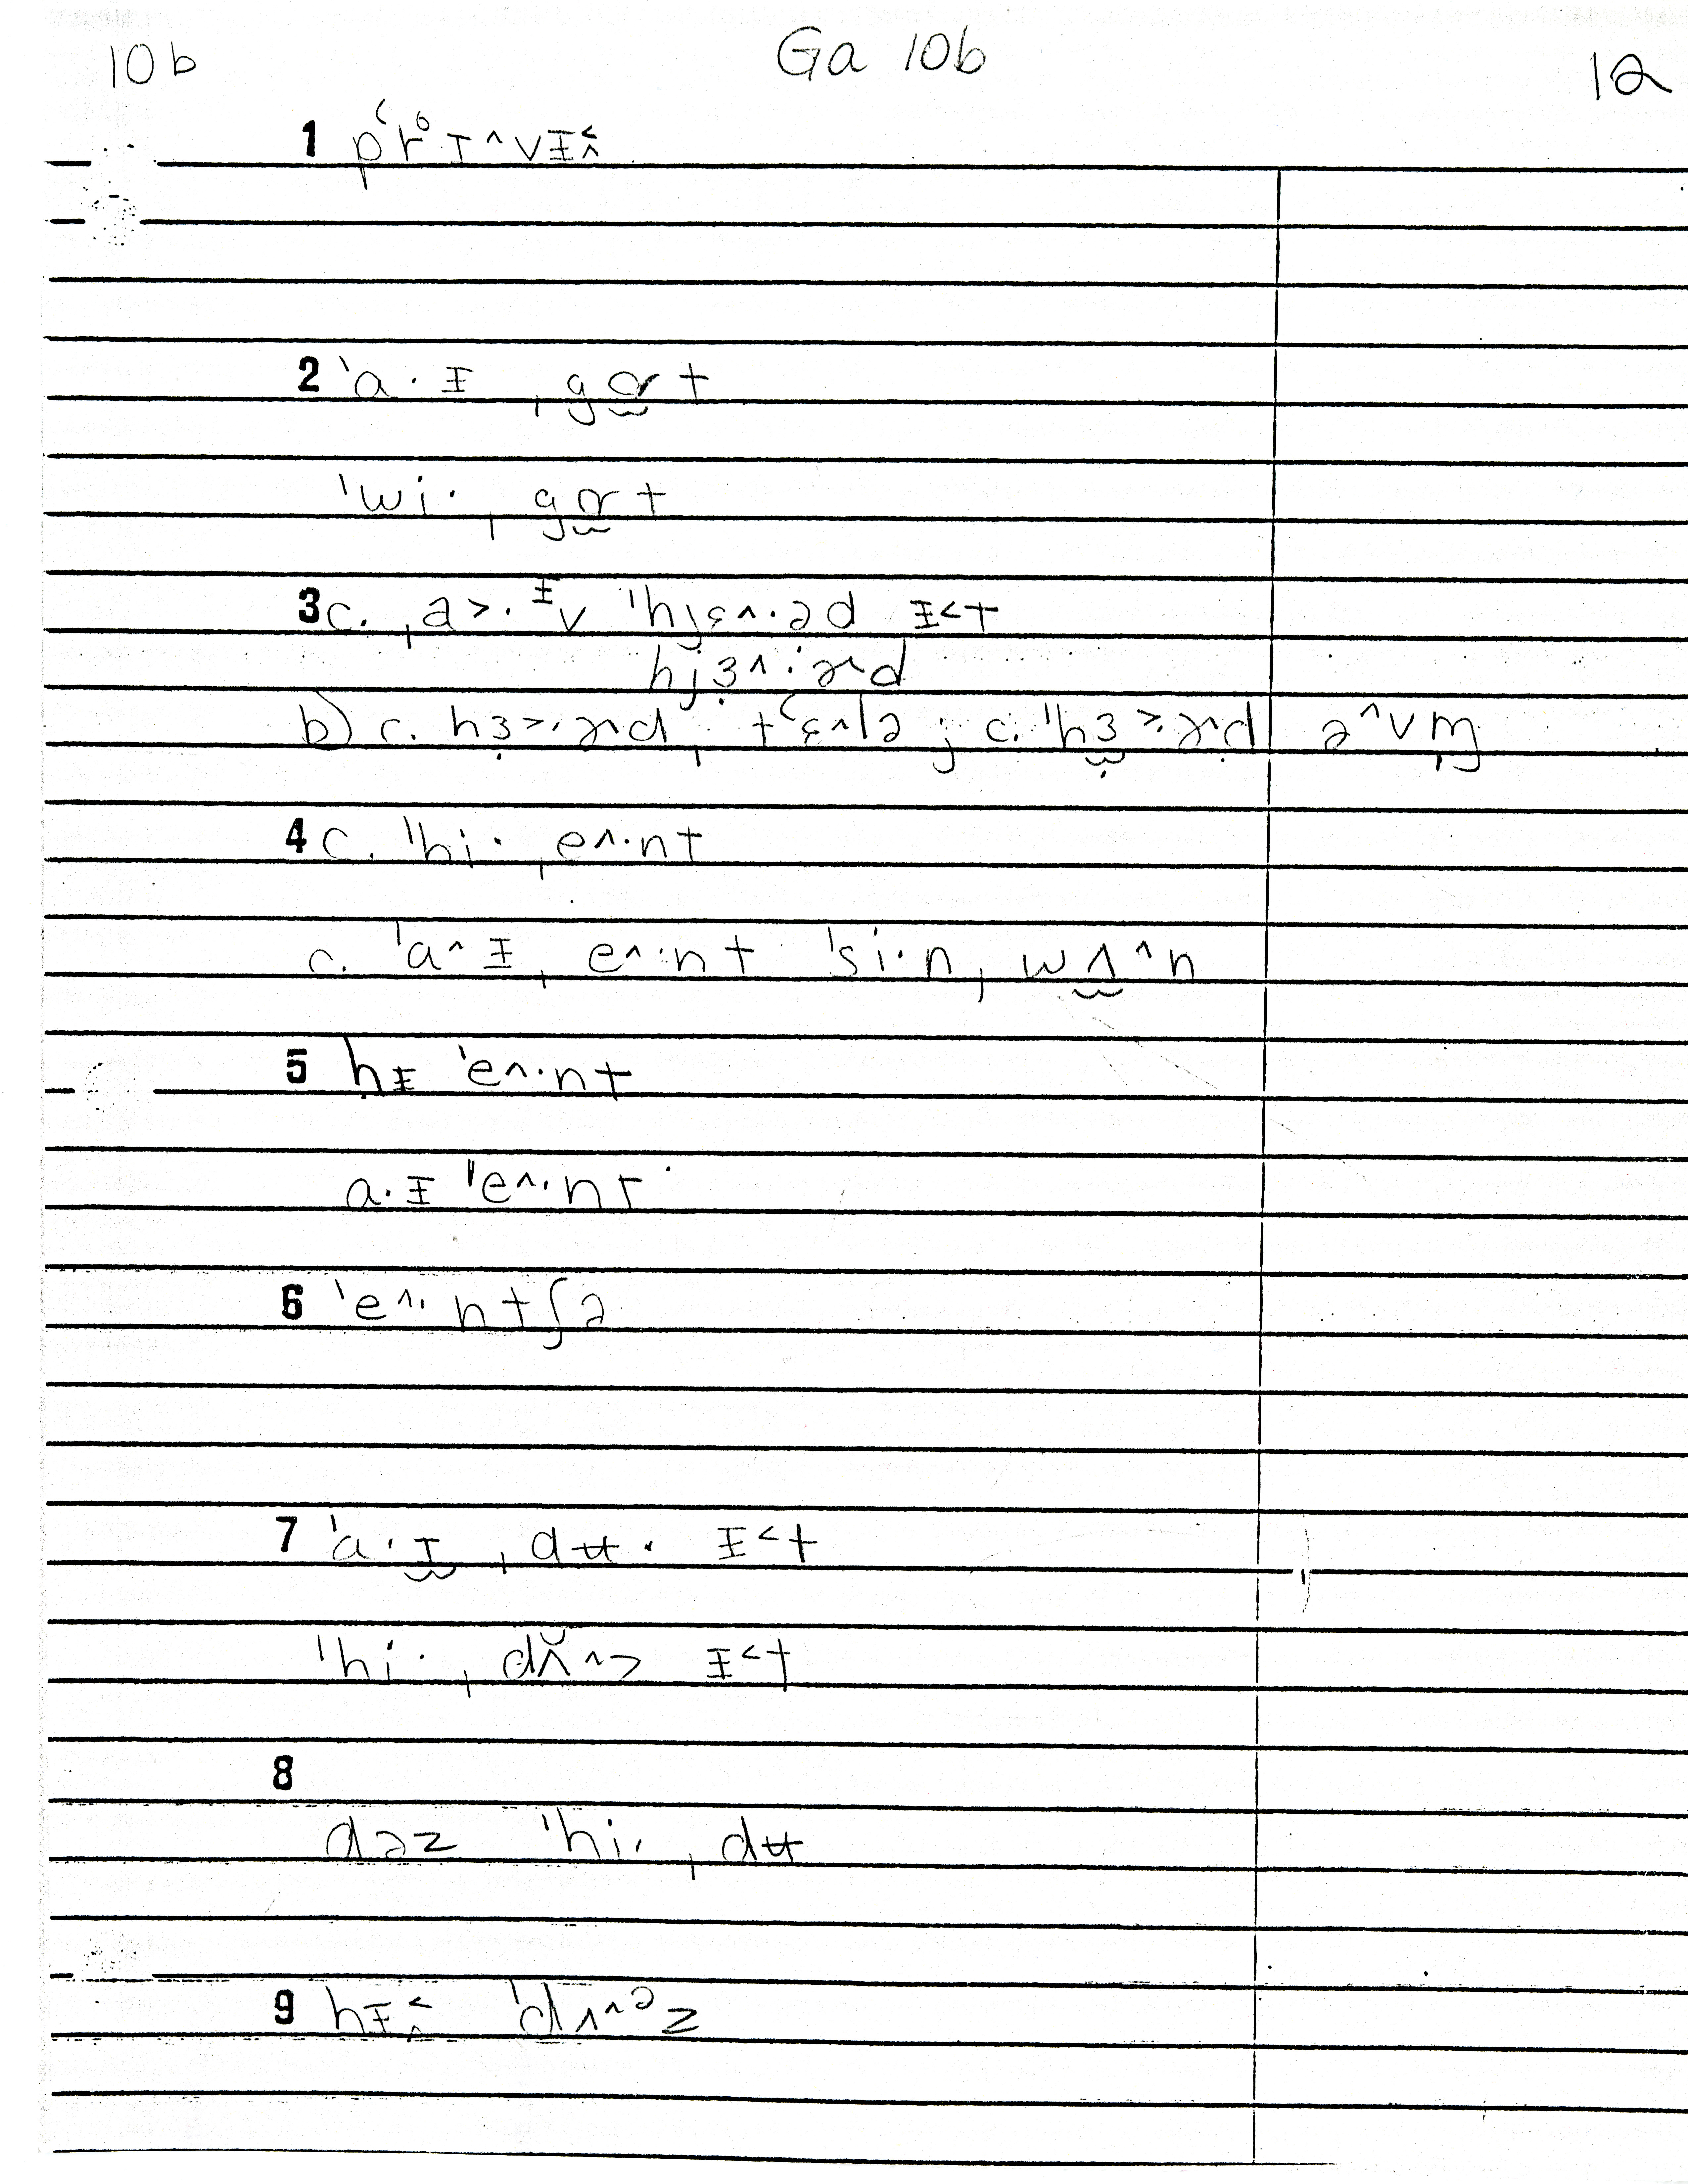 10b Ga 10b 12
1 pʻr̥ɪ^vᵻ˂^
2 ˈa·ᵻ ˌgɑ̯ɚt
ˈwi· ˌgɑ̯ɚt
3 c. ˌa˃·ᵻv ˈˈhjɛ^·əd ᵻ˂t
hjɜ^·ɚd
b) c. hɜ˃·ɚd ˌtʻɛ^lə ; c. ˈˈhɜ˃·ɚd ə^vm̩
4 c. ˈˈhi· ˌe^·nt
c. ˈa^ᵻ ˌe^·nt ˈsi·n ˌwʌ̯^n
5 hᵻ ˈe^·nt
a·ᵻ ˈˈe^·nt
6 ˈe^·ntʃə
7 ˈa·ɪ̯ ˌdʉ· ᵻ˂t
ˈhi· ˌdʌ̆^˃ ᵻ˂t
8
dəz ˈhi· ˌdʉ
9 hᵻ˂^ ˈdʌ^ᵊz